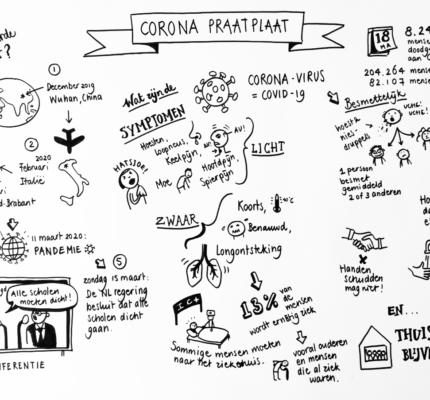 CORONA PRAATPLAAT
t?
1
December 2019
Wuhan, China
2
2020
Februari
Italië
d-Brabant
11 maart 2020:
PANDEMIE
5
zondag 15 maart:
De NL regering
besluit dat alle
scholen dicht
gaan.
Alle scholen
moeten dicht!
FERENTIE
Wat zijn de
SYMPTOMEN
CORONA-VIRUS
= COVID-19
HATSJOE!
Hoesten,
Loopneus,
Keelpijn,
AU!
Hoofdpijn,
Spierpijn
Moe
LICHT
ZWAAR
Koorts,
Benauwd,
Longontsteking
I.C.
Sommige mensen moeten
naar het ziekenhuis.
13% van
de
mensen
wordt ernstig ziek
vooral ouderen
en mensen
die al ziek
waren.
18
MA
8.24
mense
doodg
aan
204.264 mense
82.107 mens
Besmettelijk
hoest &
nies-
druppels
UCHE!
UCHE!
1 persoon
besmet
gemiddeld
2 of 3 anderen
Handen
schudden
mag niet!
EN...
THUIS
BLIJV